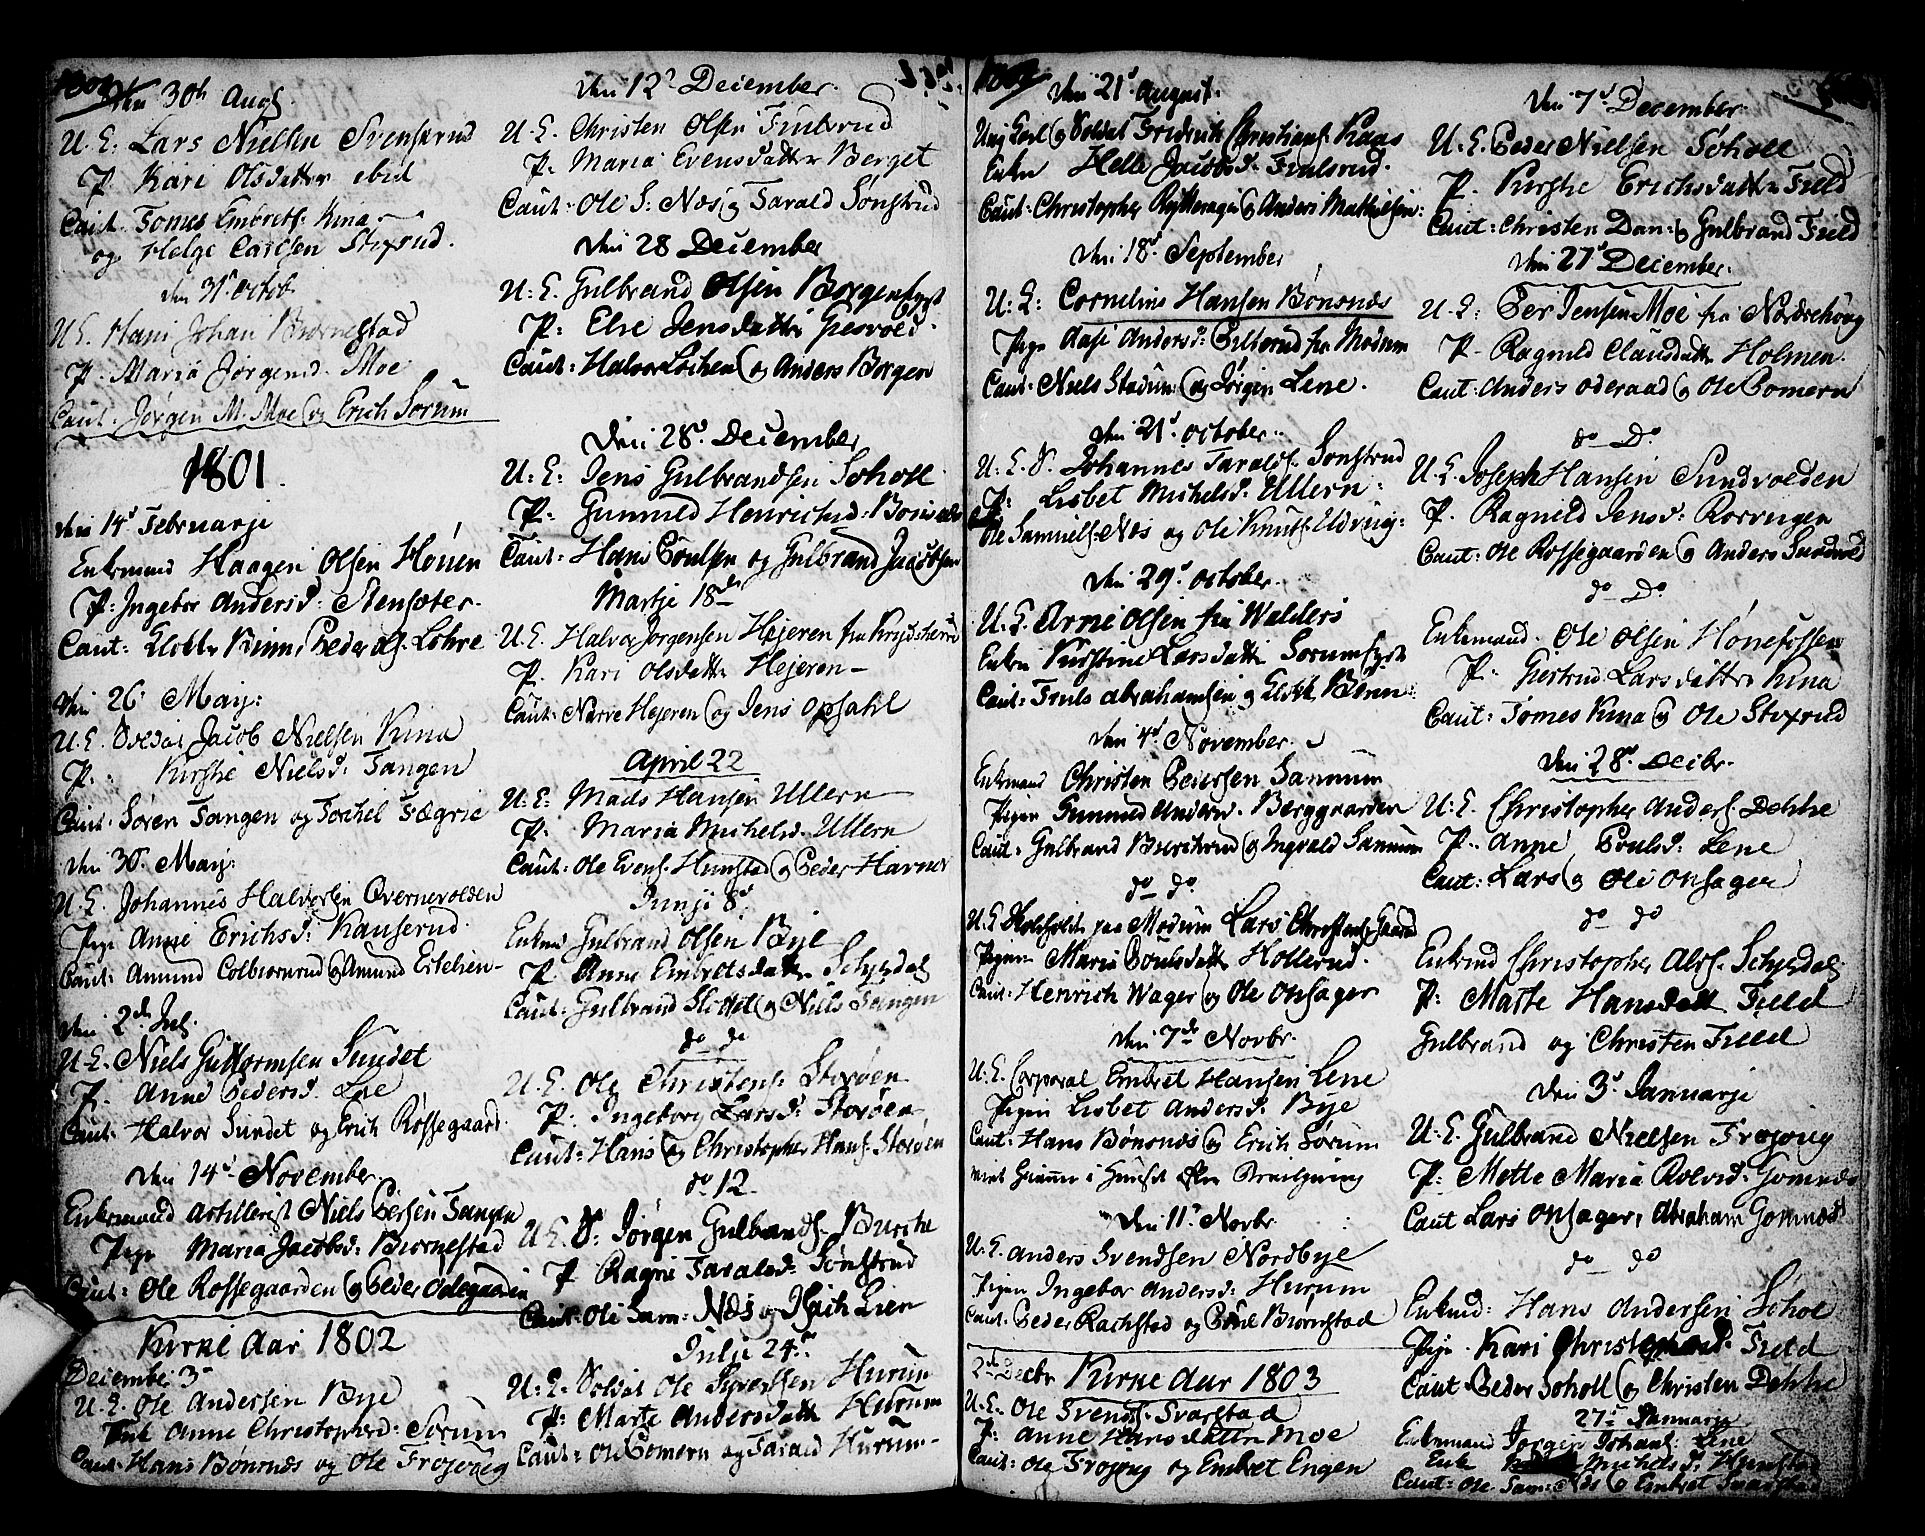 Den 30te Aug.
U. E: Lars Nielsen Svenserud
P. Kari Olsdatter ibid
Caut. Tomes Embretss. Kina
og Helge Carlsen Stixrud.
den 31 octob.
U. E. Hans Johan Biørnestad
P. Maria Jørgensd. Moe
Caut. Jørgen M. Moe og Erich Sørum
1801.
den 14d Februarje
Enkemand Haagen Olsen Hønen
P: Ingebor Andersd: Stensæter.
Caut: Peder Ols. Lohre
Den 26 Maij:
U. E. Soldat Jacob Nielsen Kina
P. Kirstie Nielsd: Tangen
Caut. Søren Tangen og Torchel Fægrie
Den 30. Maij:
U. E. Johannes Halvorsen Overnevolden
Pige Anne Erichsd: Kauserud.
Caut: Amund Colbiørnrud og Amund
den 2de Jul.
U. E. Niels Guttormsen Sundet
P. Anne Pedersd. Lee
Caut: Halvor Sundet og Erich Røssegaard.
Den 14d November
Enkemand Artillerist Niels Persen Tangen
Pige Maria Jacobsd: Biørnestad
Caut: Ole Rossegaarden og Peder Odegaarden
Kirke Aar 1802
Decembe: 5
U. E. Ole Andersen Bye
Enk Anne Christophersd: Sørum
Caut. Hans Bønsnæs og Ole Frøjoug
Den 12d December.
U. E. Christen Olsen
P. Maria Evensdatter Berget
Caut: Ole S: Næs og Tarald Sønstrud
Den 28 December
U: E. Gulbrand Olsen Borgen
P: Else Jensdatter Gesvold.
Caut: Halvor Lochen og Anders Borgen
Den 28d. December
U: E: Jens Gulbrandsen Soholt
P: Gunnild Henrichsd: Bønsnæs
Caut: Hans Poulsen og Gulbrand Jacobsen
Martje 18de
U. E. Halvor Jørgensen Hejeren fra Krydsherre
P. Kari Olsdatter Hejeren
Caut: Narve Hejeren og Jens Opsahl
April 22
U: E: Mads Hansen Ullern
P: Maria Michelsd. Ullern
Caut: Ole Evens. Hunstad og Peder Havner
Junji 8d.
Enkmd Gulbrand Olsen Bye
P. Anne Embretsdatter
Caut: Gulbrand Slodet og Niels Tangen
do do
U. E. Ole Christens. Storøen
P: Ingeborg Larsd: Storøen
Caut: Hans og Christopher Hans. Storøen
do 12
U. E. S: Jørgen Gulbrands.
P Ragni Taralsd: Sønstrud
Caut: Ole Sam: Næs og Lien
Julii 24de
U: E. Soldat Ole Hurum
P: Marte Andersdatt Hurum
Caut: Ole Pomern og Tarald Hurum
1802
den 21d August.
Ung Carl og Soldat Fredrich Christians. Kaas
Enken Helle Jacobsd.
Caut: Christopher og Anders Mathiesen:
Den 18d September
U: E: Cornelius Hansen Bønsnæs
Pige Aase Andersd: fra Modum
Caut: Niels Stadum og Jørgen Lene.
den 21d october.
U. E. S. Johannes Taralds. Sønstrud
P: Lisbet Michelsd: Ullern
Ole Samuels. Næs og Ole Knuts.
Den 29d october.
U. E. Arne Olsen fra Walders
Enken Kirstine Larsdatter
Caut: Truls Abrahamsen og
den 4d. November.
Enkemand Christen Peersen Sannum
Pigen Gunnild Andersd. Berggaarden
Caut: Gulbrand og Ingvald Sannum
do do
U. E. paa Modum Lars Gaard
Pigen Maria Poulsdatter Hollerud.
Caut: Henrich Wager og Ole Onsager
Den 7de Novbr.
U. E. Corporal Embret Hansen Lene
Pigen Lisbet Andersd: Bye
Caut: Hans Bønsnæs og Erich Sørum
Den 11te Novbr
U. E. Anders Svendsen Nordbye
Pigen Ingebor Andersd: Hurum
Caut: Peder Rachstad og Poul Biørnstad
2de Decbr Kirke Aar 1803
U. E. Ole Svends. Svarstad
P: Anne Hansdatter Moe
Caut: Ole Frøjoug og Embret Engen
Den 7d December.
U. E. Peder Nielsen Soholt
P. Kirstie Erichsdatter Field
Caut: Christen Dam: og Gulbrand Field
Den 27d December.
U. E: Per Jensen Moe fra Norderhoug
P. Ragnild Clausdatter Holmen.
Caut. Anders oderaad og Ole Pomern
do Do
U. E. Joseph Hansen Sundvolden
P. Ragnild Jensd: Rørvigen
Caut: Ole Rossegaarden og Anders Sundvold
do Do
Enkemand. Ole Olsen Hønefossen
P. Giertrud Larsdatter Kina
Caut: Tomes Kina og Ole Stixrud
Den 28d. Decbr.
U. E. Christopher Anders. Dehle
P. Anne Poulsd: Lene
Caut: Lars og Ole Onsager
do do
Enkmd Christopher
P: Matte Hansdatt Field
Gulbrand og Christen Field
Den 3d. Januarje
U. E. Gulbrand Nielsen Frøjoug
P: Mette Maria Rolvsd: Gomnæs
Caut Lars Onsager, Abraham Gomnæs
do do
Enkmd: Hans Andersen Sohol
Pige Kari Field
Caut Peder Soholt og Christen Dehle
27d Januarje
Enkemand Jørgen Johans: Lene
Enk Michelsd. Hunstad
Caut: Ole Sam: Næs og Embret Svarstad